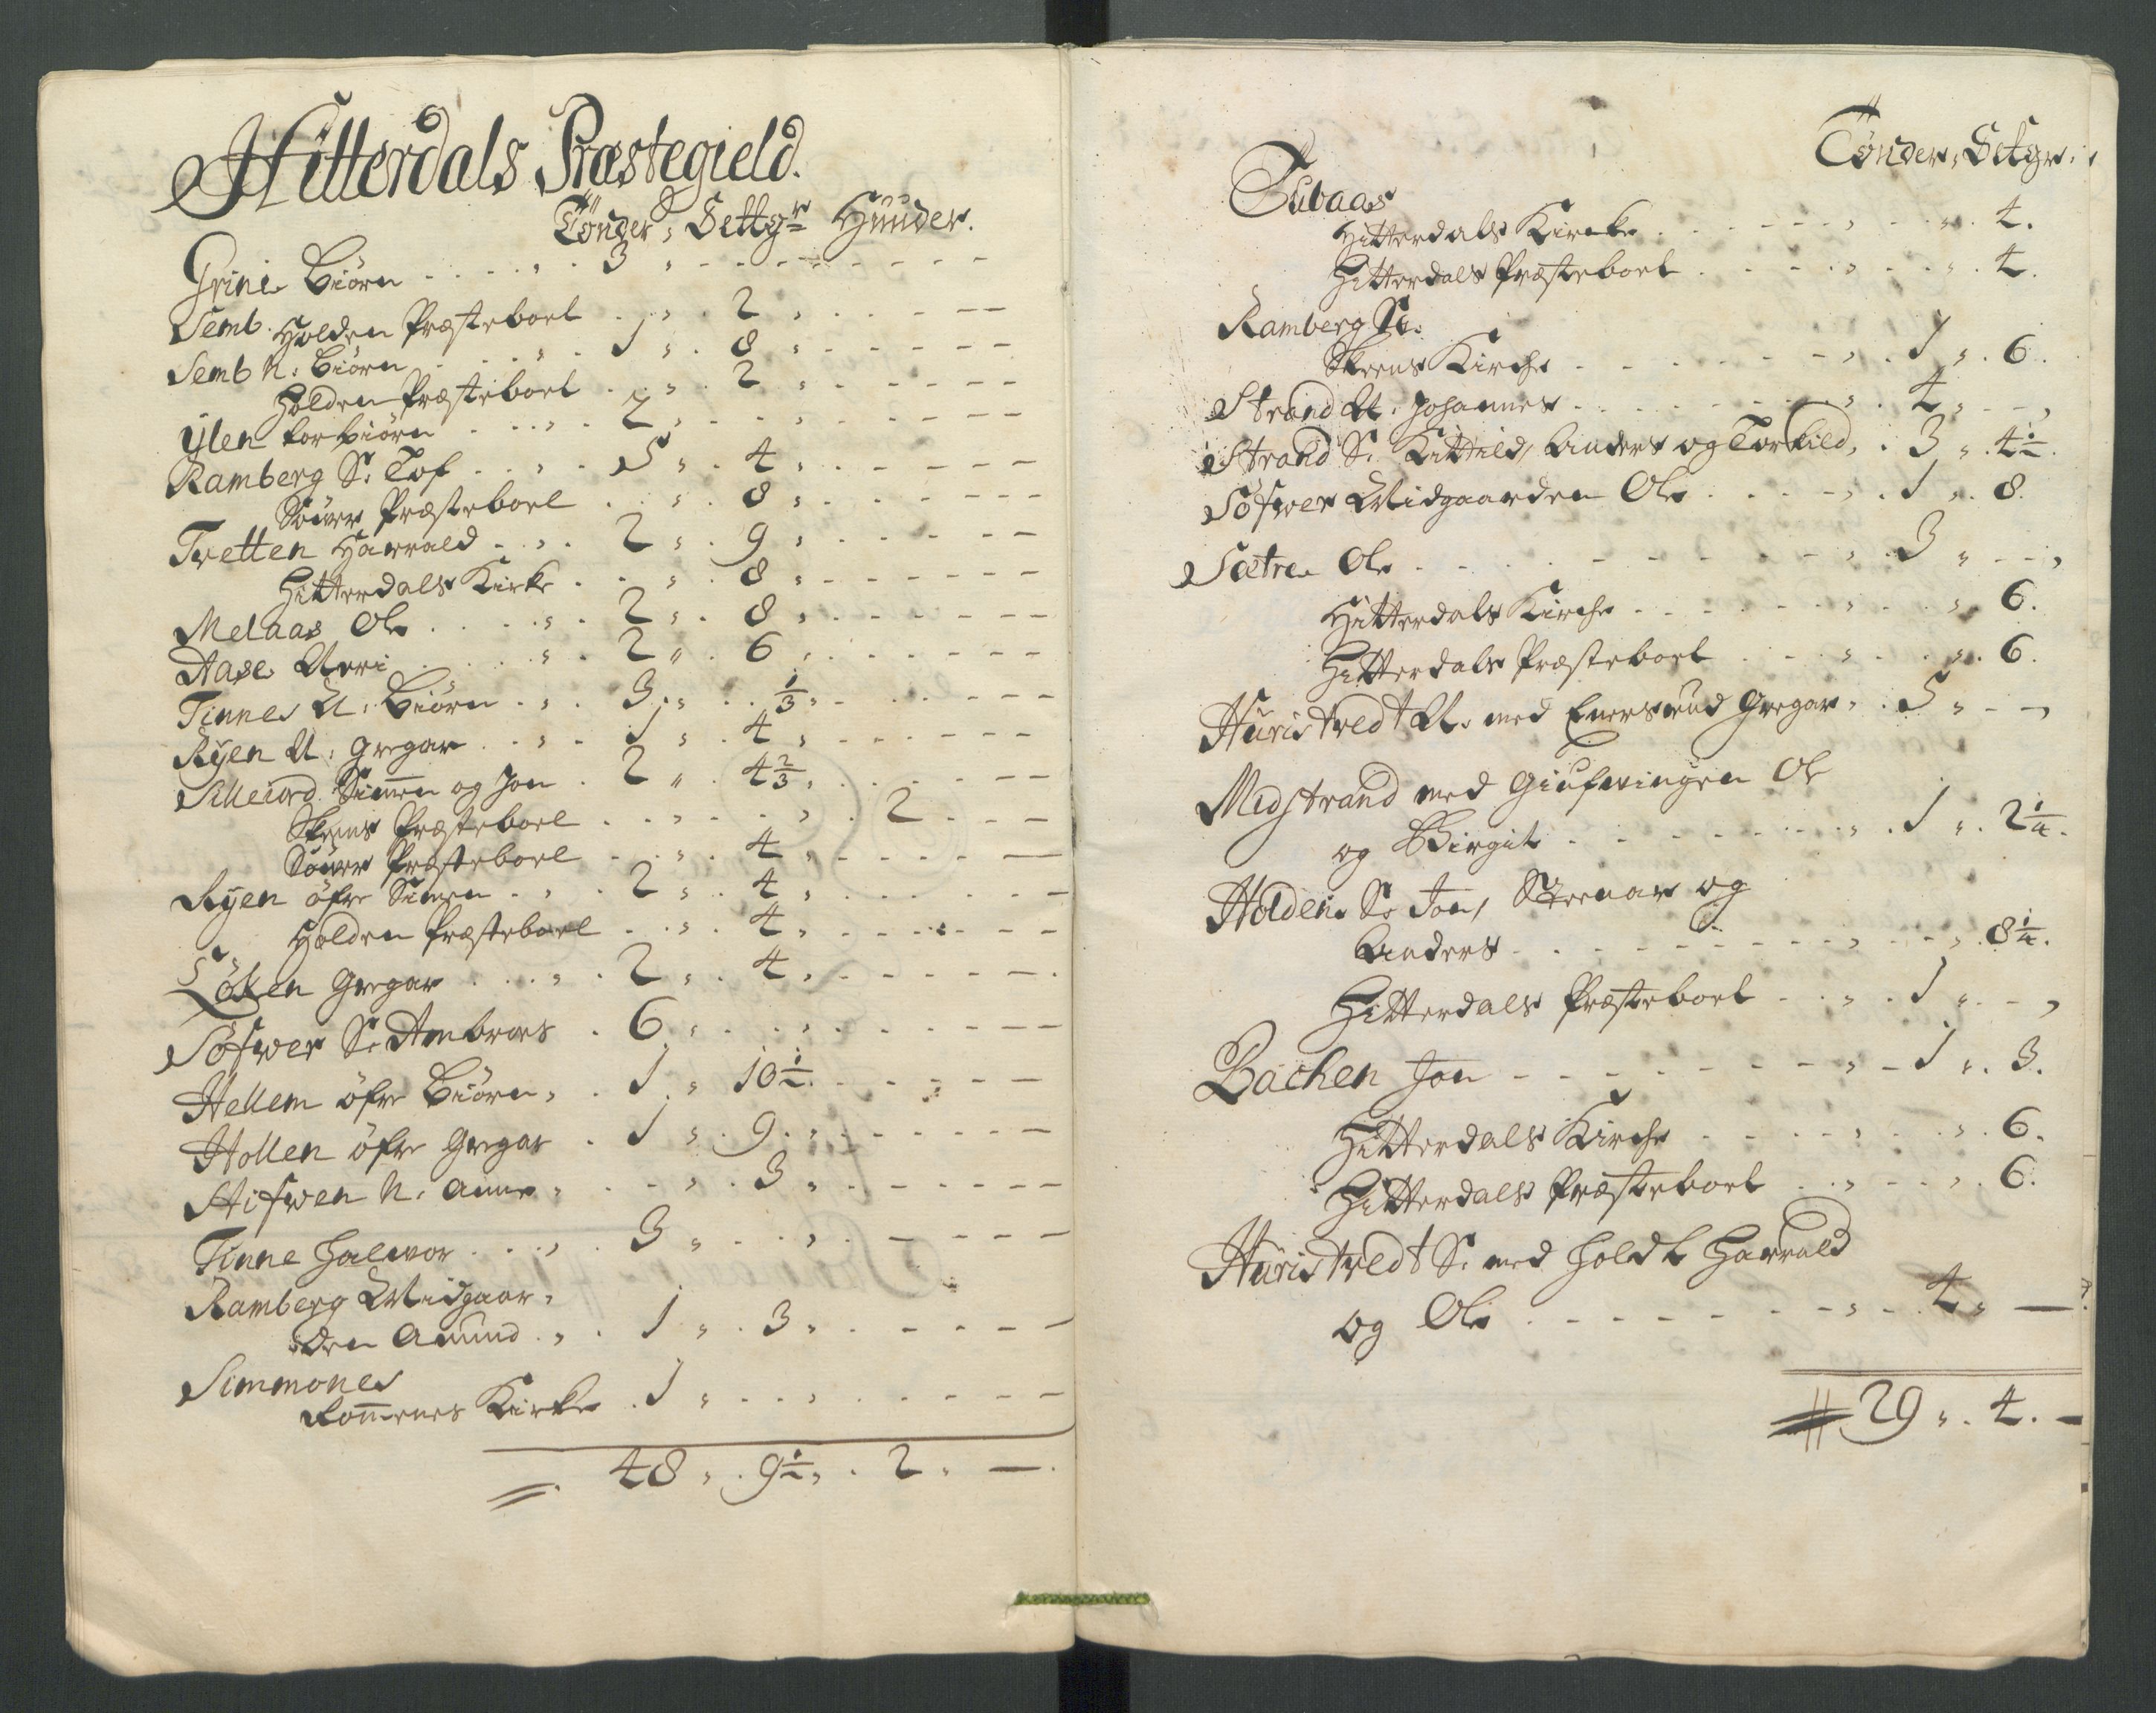 Hitterdals Præstegield.
Tönder, Settgr Huuder.
Grini Biörn 3
Semb Holden Præsteboel 2
Semb N: Biörn 1 8
Holden Præsteboel 2
Ylen Torbiörn 2
Ramberg S: Tof 5 4
Souer Præsteboel 8
Tvetten Harrald 2 9
Hitterdals Kirke 8
Melaas Ole 2 8
Aase 2 6
Tinnes U: Biörn 3 1/3
Ryen U: Gregar 1 4
Silleiord Simen og Jon 2 4 2/3
Skeens Præsteboel 2
Souer Præsteboel 4
Ryen öfre Simen 2 4
Holden Præsteboel 4
Löken Gregar 2 4
Söfwer S: Ambroes 6
Hellem öfre Biörn 1 10 1/2
Hollen öfre Gregar 1 9
Stifwen N: Anne 3
Tinne Halvor 3
Ramberg Midgaar-
den Amund 1 3
Simmones
Rommenes Kirke 1
48 9 1/2 2
Tönder, Setgr:
Tubaas
Hitterdals Kircke 4.
Hitterdals Præsteboel 4.
Ramberg N:
Skeens Kirche 1 6.
Strand U: Johannes 4
Strand S: Kittild, Anders og Torkild 3 4 1/2.
Söfwer Midgaarden Ole 1 8.
Sætre Ole 3
Hitterdals Kirche 6.
Hitterdals Præsteboel 6.
Huristvedt U: med Enersrud Gregar 5
Medstrand med Giufwingen Ole
og Birgit 1 2 1/4.
Holden S: Jon, Steenar og
Anders 8 1/4.
Hitterdals Præsteboel 1
Bachen Jon 1 3.
Hitterdals Kirche 6.
Hitterdals Præsteboel 6.
Huristvedt S: med Holdt Harrald
og Ole 4
29 4.